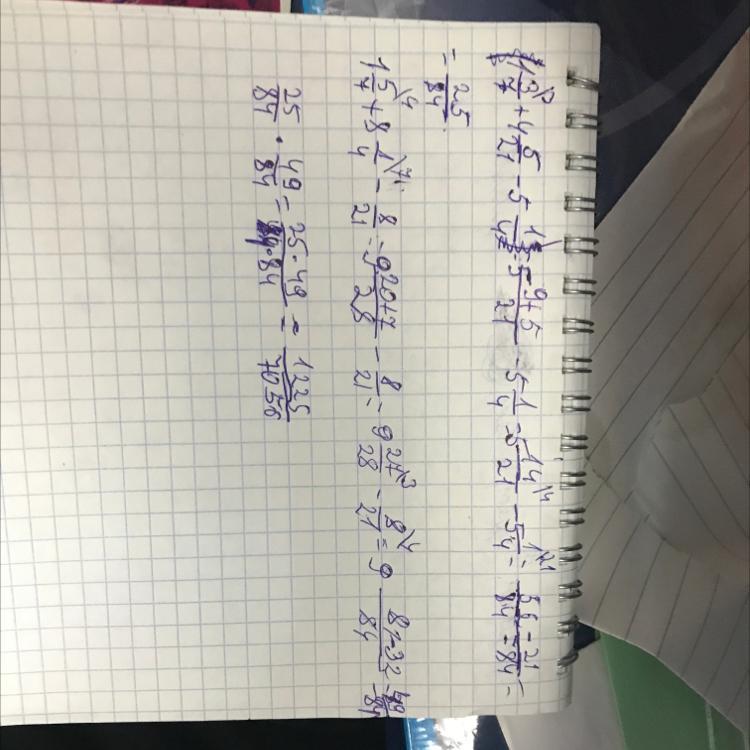 1 3/7 + 4 5/21 - 5 1/4 = 5 9+5/21 - 5 1/4 = 5 14/21 - 5 1/4 = 56-21/84 =
= 25/84
1 5/7 + 8 1/4 - 8/21 = 9 20+7/28 - 8/21 = 9 27/28 - 8/21 = 9 81-32/84 = 49/84
25/84 · 49/84 = 25·49/84·84 = 1225/7056